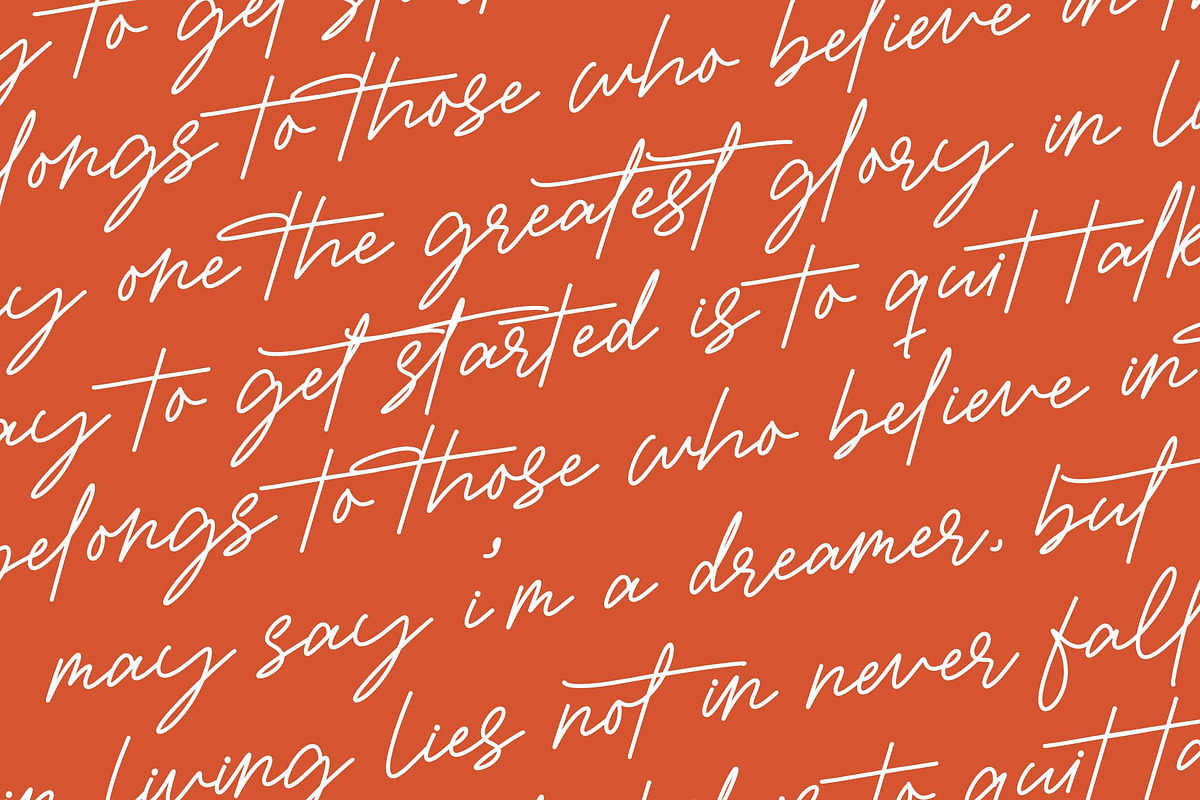 to get
longs to those who believe in
one the greatest glory in
ay to get started is to quit talk
belongs to those who believe in
may say i'm a dreamer, but
in living lies not in never fall
is to quit ta